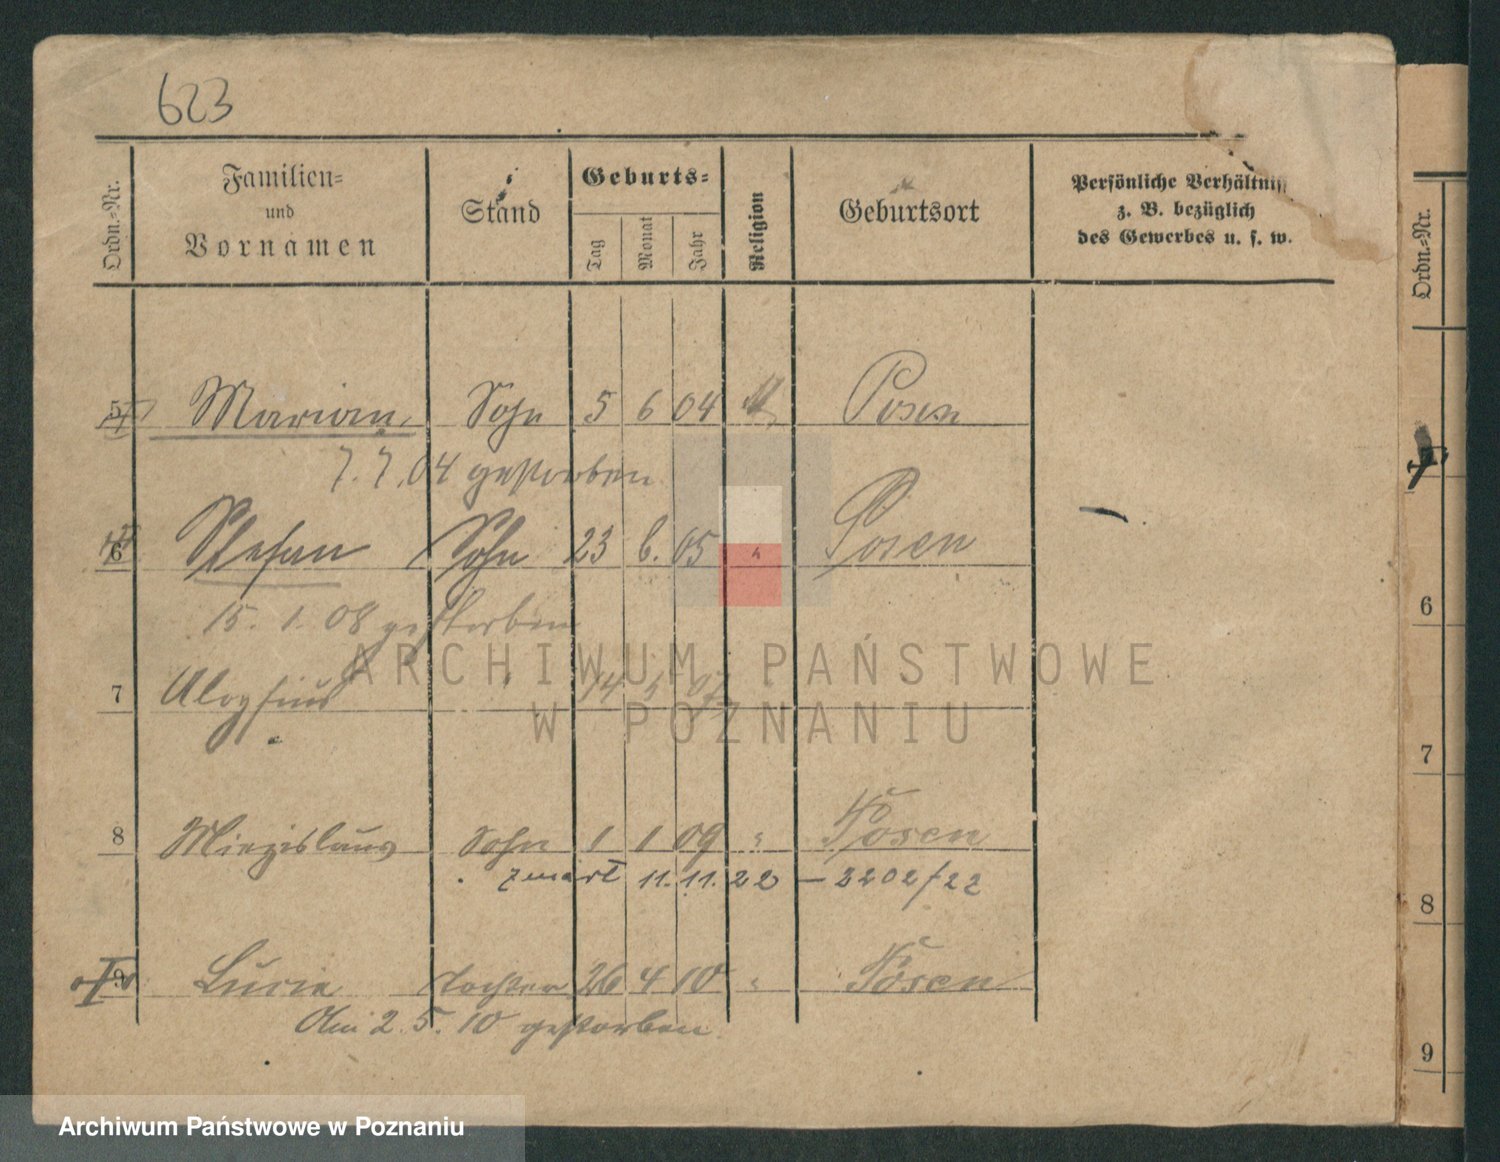 623
Ordn.-Nr.
Familien-
und
Vornamen
Stand
Geburts-
Tag
Monat
Jahr
Religion
Geburtsort
Persönliche Verhältniss
z. B. bezüglich
des Gewerbes u. s. w.
Ordn.-Nr.
5 Marian Sohn 5 6 04 Posen
7. 7. 04 gestorben
6 Stefan Sohn 23 6. 05 " Posen
15. 1. 08 gestorben
6
7 Aloysius 14 07
ARCHIWUM PAŃSTWOWE
W POZNANIU
7
8 Miezislaus Sohn 1 1 09 " Posen
zmarł 11. 11. 22 – 3202/22
8
9 Lucie Tochter 26 4 10 " Posen
Am 2. 5. 10 gestorben
9
Archiwum Państwowe w Poznaniu